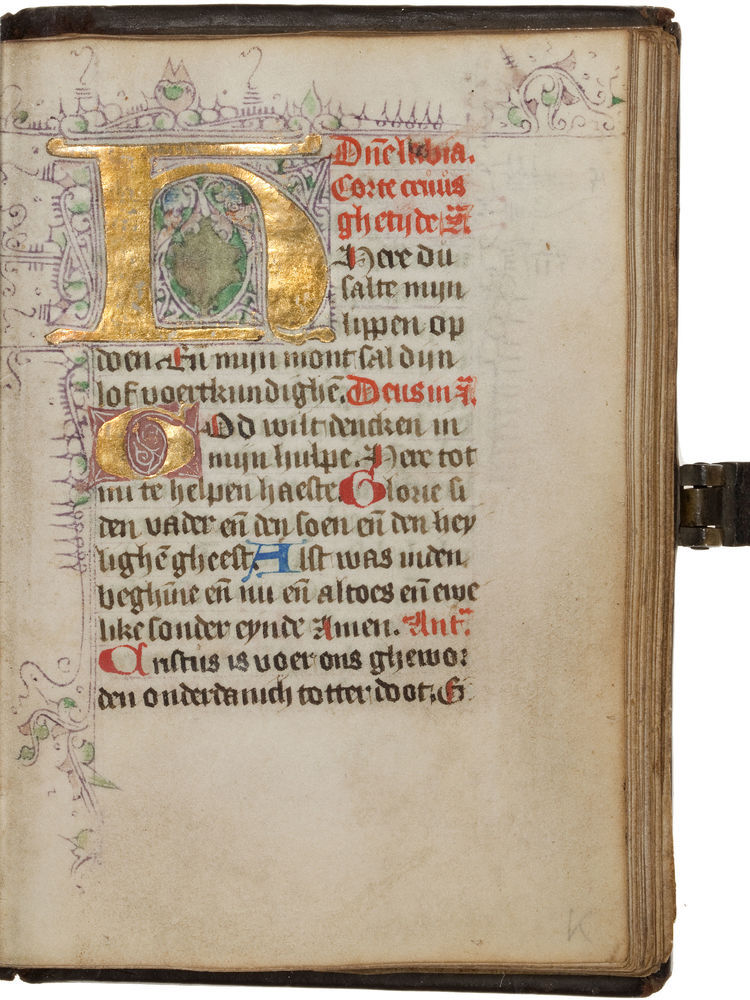 Dn̄e labia.
Corte cruus
ghetijde
Here du
salte mijn
lippen op
doen. En̄ mijn mont sal dijn
lof voertkundighē. Deus in a.
God wilt dencken in
mijn hulpe. Here tot
mi te helpen haeste Glorie si
den vader en̄ den soen en̄ den hey
lighē gheest. Alst was inden
beghīne en̄ nu en̄ altoes en̄ ewe
like sonder eynde Amen. Ant.
Cristus is voer ons ghewor
den onderdanich totter doot. G